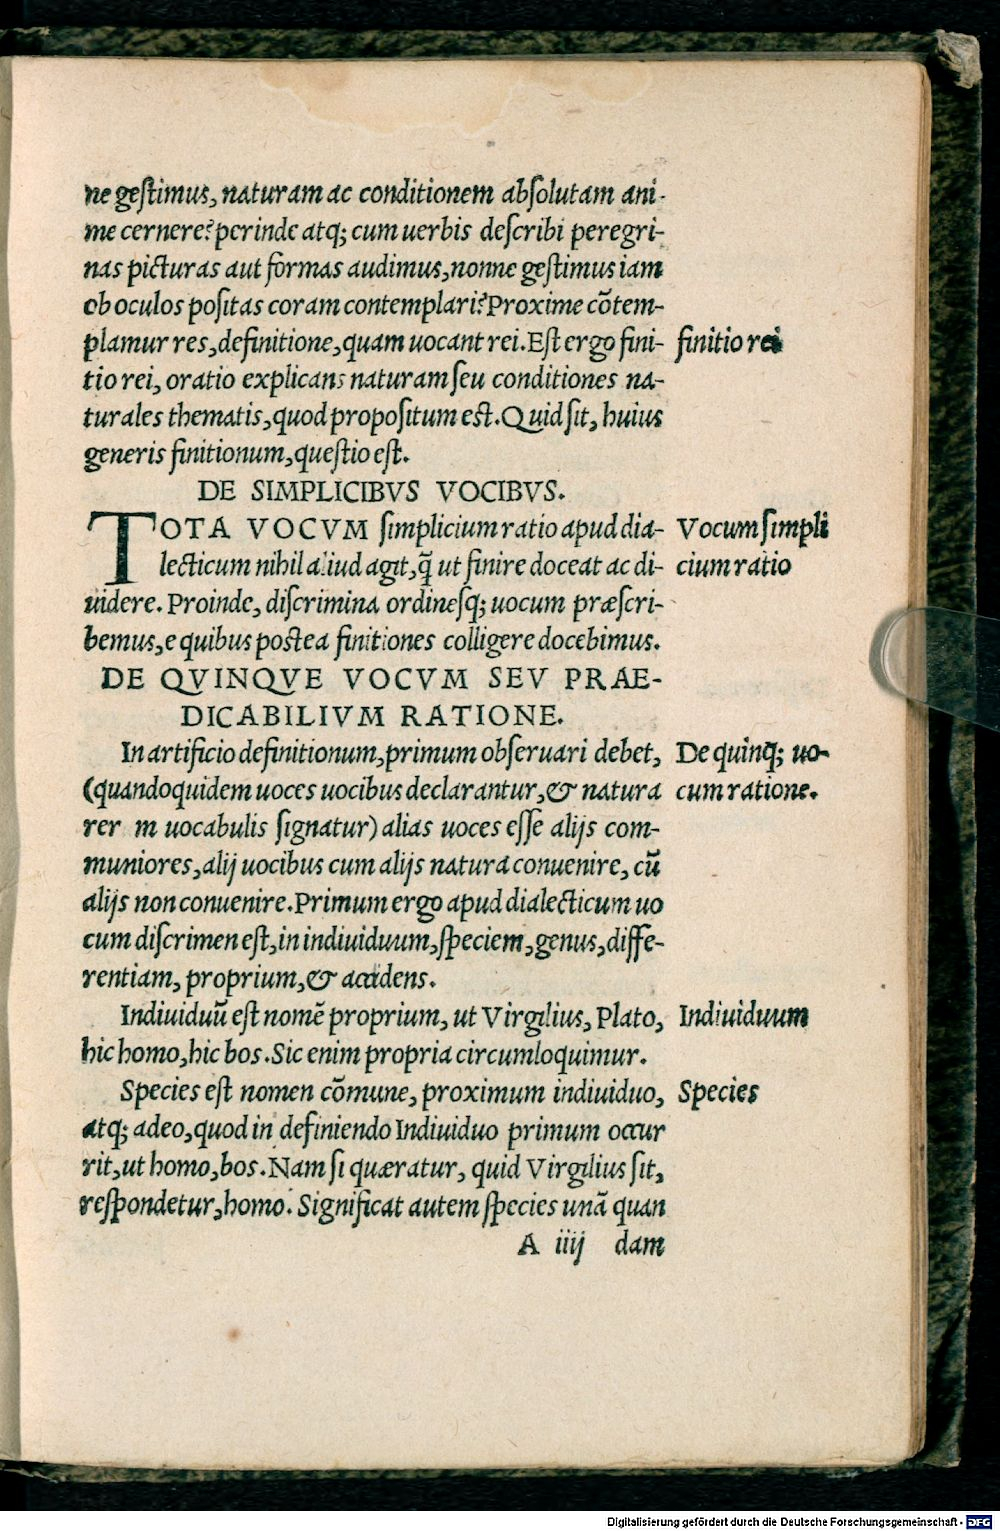 ne gestimus, naturam ac conditionem absolutam ani-
me cernere? perinde atq; cum uerbis describi peregri-
nas picturas aut formas audimus, nonne gestimus iam
ob oculos positas coram contemplari? Proxime cõtem-
plamur res, definitione, quam uocant rei. Est ergo fini-
finitio rei
tio rei, oratio explicans naturam seu conditiones na-
turales thematis, quod propositum est. Quid sit, huius
generis finitionum, questio est.
DE SIMPLICIBVS VOCIBVS.
TOTA VOCVM simplicium ratio apud dia-
Vocum simpli
lecticum nihil aliud agit, q̃ ut finire doceat ac di-
cium ratio
uidere. Proinde, discrimina ordinesq; uocum præscri-
bemus, e quibus postea finitiones colligere docebimus.
DE QVINQVE VOCVM SEV PRAE-
DICABILIVM RATIONE.
In artificio definitionum, primum obseruari debet,
De quinq; uo-
(quandoquidem uoces uocibus declarantur, & natura
cum ratione.
rer m uocabulis signatur) alias uoces esse alijs com-
muniores, alij uocibus cum alijs natura conuenire, cũ
alijs non conuenire. Primum ergo apud dialecticum uo
cum discrimen est, in indiuiduum, speciem, genus, diffe-
rentiam, proprium, & accidens.
Indiuiduũ est nomẽ proprium, ut Virgilius, Plato,
Indiuiduum
hic homo, hic bos. Sic enim propria circumloquimur.
Species est nomen cõmune, proximum indiuiduo,
Species
atq; adeo, quod in definiendo Indiuiduo primum occur
rit, ut homo, bos. Nam si quæratur, quid Virgilius sit,
respondetur, homo. Significat autem species unã quan
A iiij dam
Digitalisierung gefördert durch die Deutsche Forschungsgemeinschaft - DFG